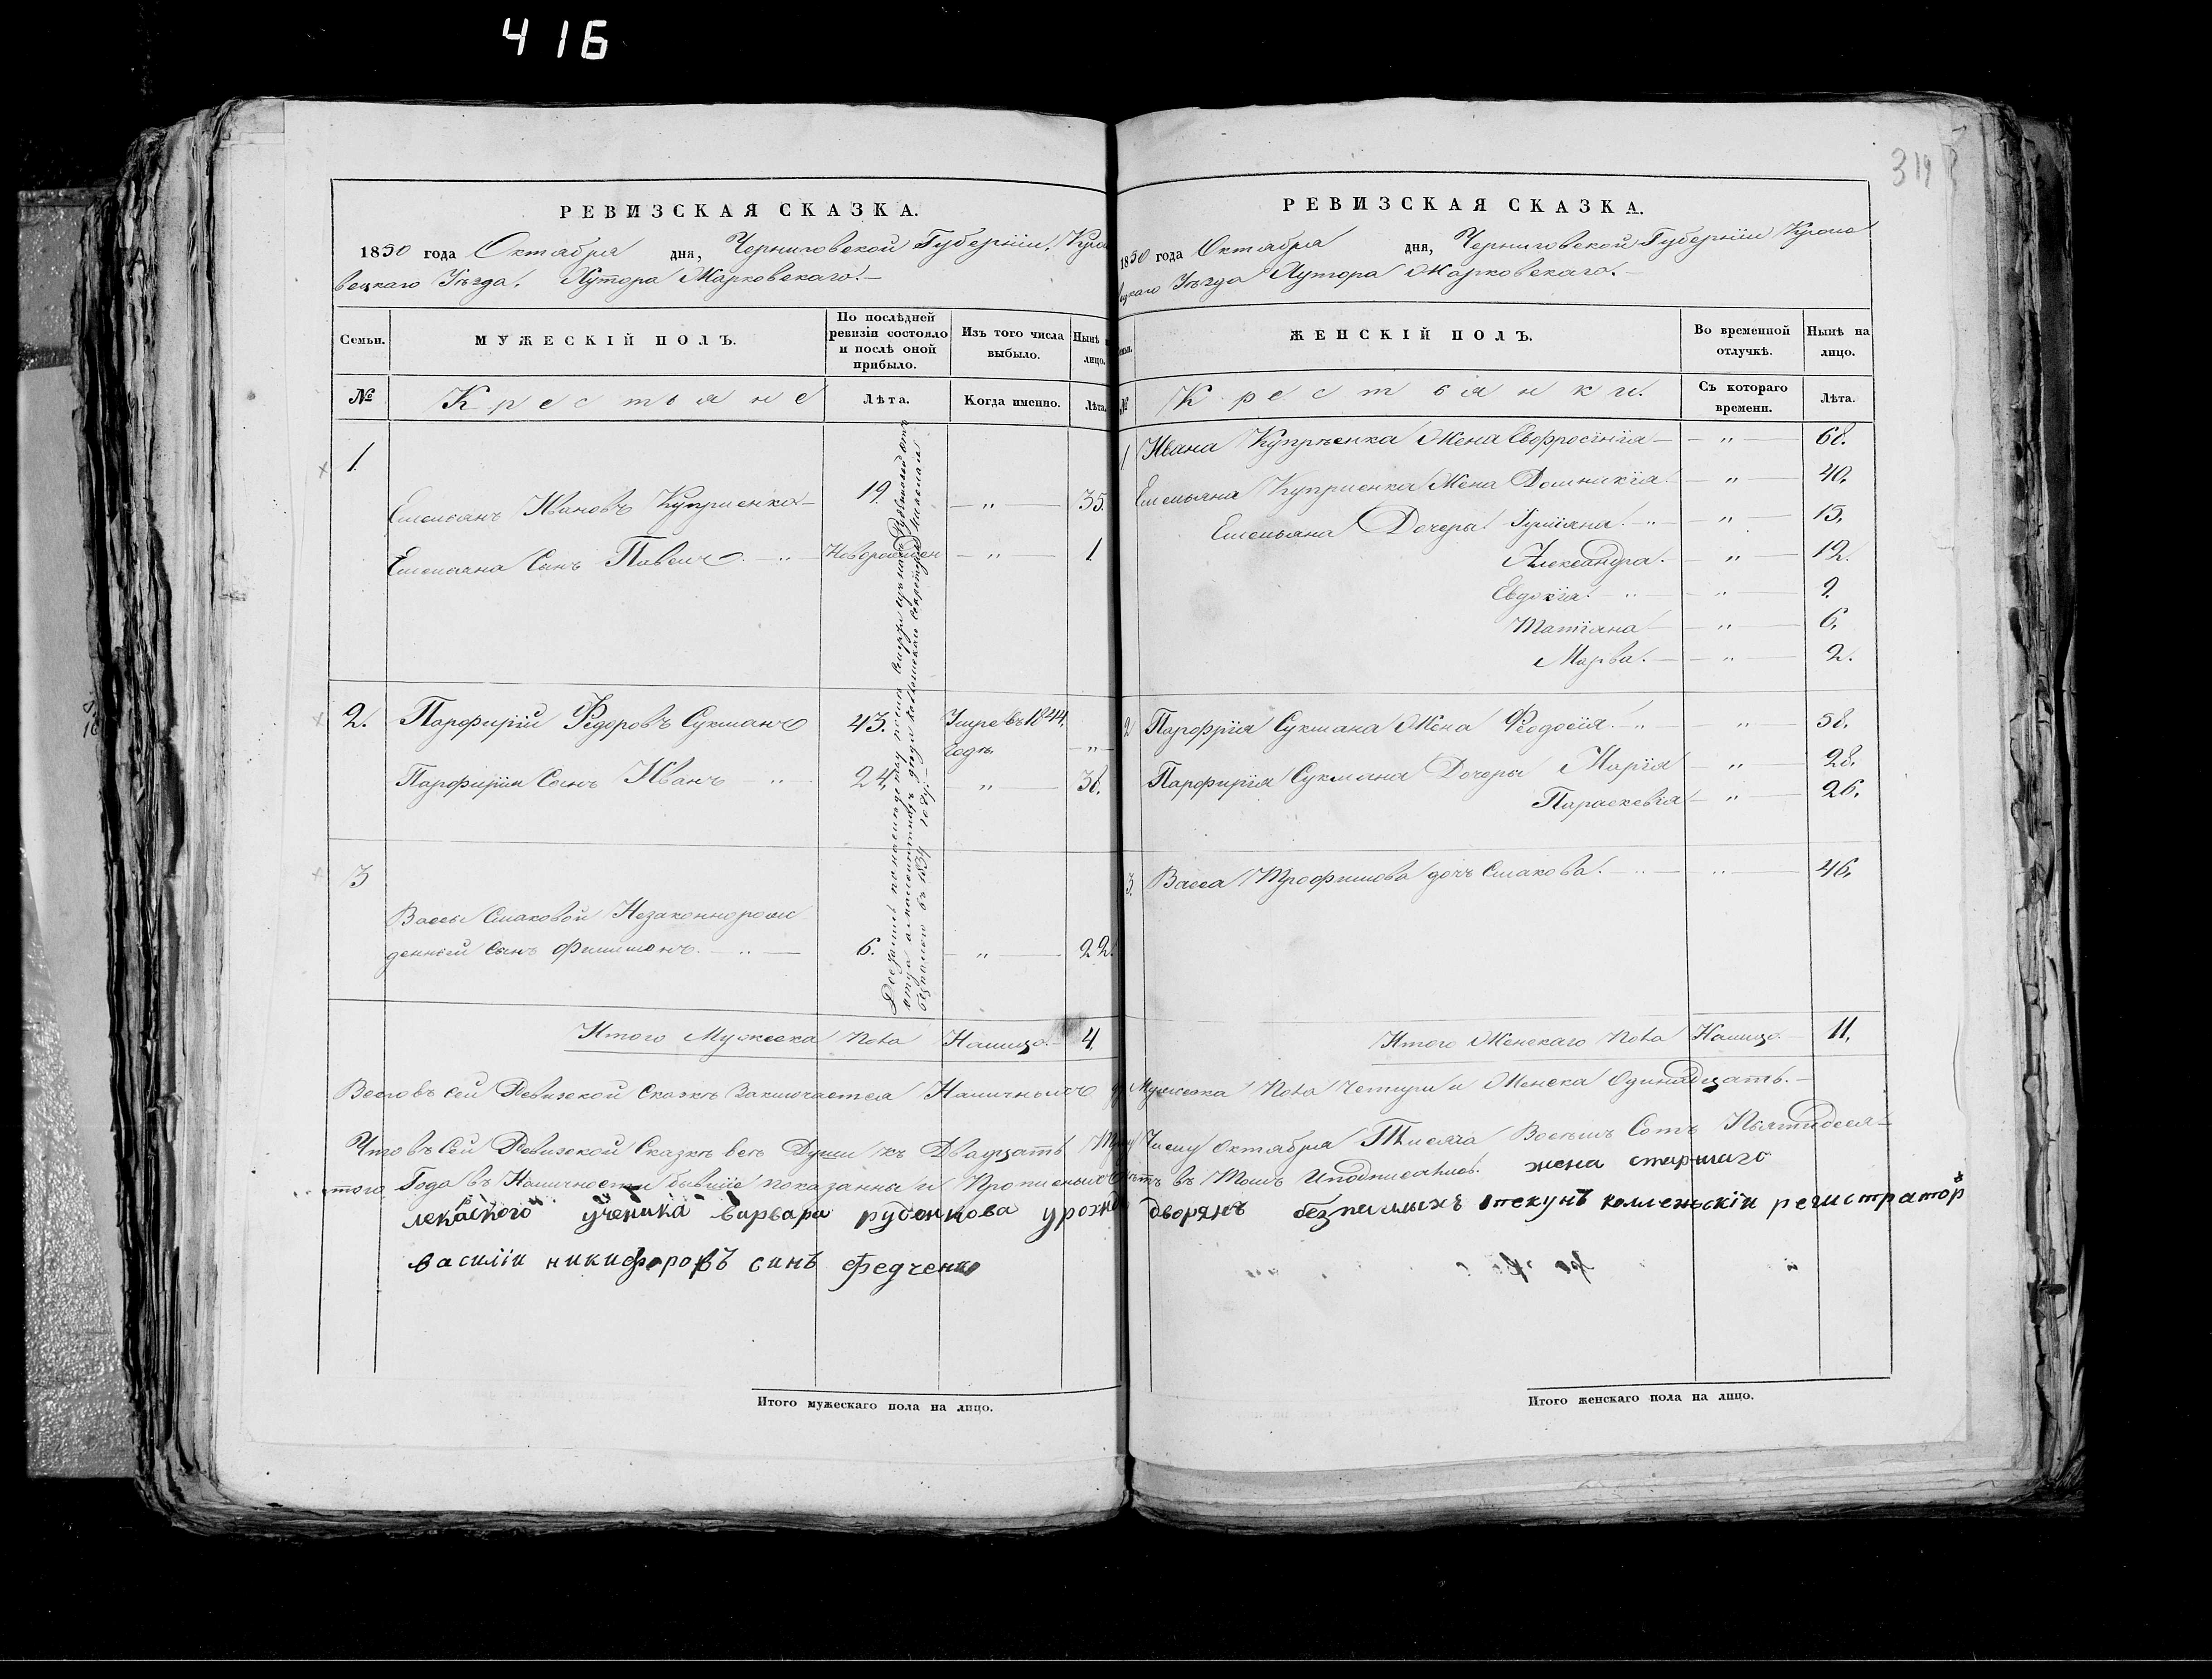 416
319
РЕВИЗСКАЯ СКАЗКА.
1850 года Октября дня, Черниговской Губерніи, Кроле
вецкаго Уѣзда. Хутора Марковскаго.
Семьи. МУЖЕСКІЙ ПОЛЪ. По послѣдней ревизіи состояло и послѣ оной прибыло. Изъ того числа выбыло. Нынѣ лицо.
№ Крестьяне Лѣта. Когда именно. Лѣта.
1 Емельянъ Ивановъ Куприенко 19. „ 35.
Емельяна Сынъ Павелъ Новорожден „ 1
2. Парфирій Федоровъ Сукманъ 43. Умре въ 1844.
годѣ. „
Парфирія Сынъ Иванъ 24. „ 36.
3
Вассы Смаковой Незаконнорож
денный сынъ Филимонъ 6. „ 22.
Итого Мужеска Пола Налицо 4.
РЕВИЗСКАЯ СКАЗКА.
1850 года Октября дня, Черниговской Губерніи Кроле
вецкаго Уѣзда Хутора Марковскаго.
ЖЕНСКІЙ ПОЛЪ. Во временной отлучкѣ. Нынѣ на лицо.
№ Крестьянки. Съ котораго времени. Лѣта.
1 Ивана Купріенка Жена Евфросинія „ 68.
Емельяна Куприенка Жена Домникія „ 40.
Емельяна Дочери Гуліяна „ 15.
Александра. „ 12.
Евдокія. „ 9.
Татіяна „ 6.
Марѳа. „ 2.
2 Парфрія Сукмана Жена Феодосія. „ 58.
Парфирія Сукмана Дочери Марія „ 28.
Параскевія „ 26.
3. Васса Трофимова дочь Смакова. „ 46.
Итого Женскаго Пола Налицо. 11.
Всего въ сей Ревизской Сказкѣ Заключается Наличныхъ Мужеска Пола Четыри и Женска Одинадцать.
Что въ Сей Ревизской Сказкѣ всѣ Души къ Двадцать Числу Октября Тисяча Восемь Сотъ Пьятидеся
того Года въ Наличности бывшіе показанны и Прописныхъ нѣтъ въ Томъ и подписались. жена старшаго
лекаского ученика варвара рубонкова урожд дворянъ безпилыхъ опекунъ коллежскіи регистраторъ
василіи никифоровъ синъ Федченко
Итого мужескаго пола на лицо.
Итого женскаго пола на лицо.